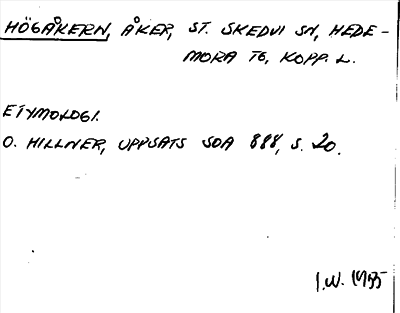 HÖGÅKERN, ÅKER, ST. SKEDVI SN, HEDE-
MORA TG, KOPP. L.
ETYMOLOGI.
O. HILLNER, UPPSATS SOA 888, S. 20.
I.W. 1955